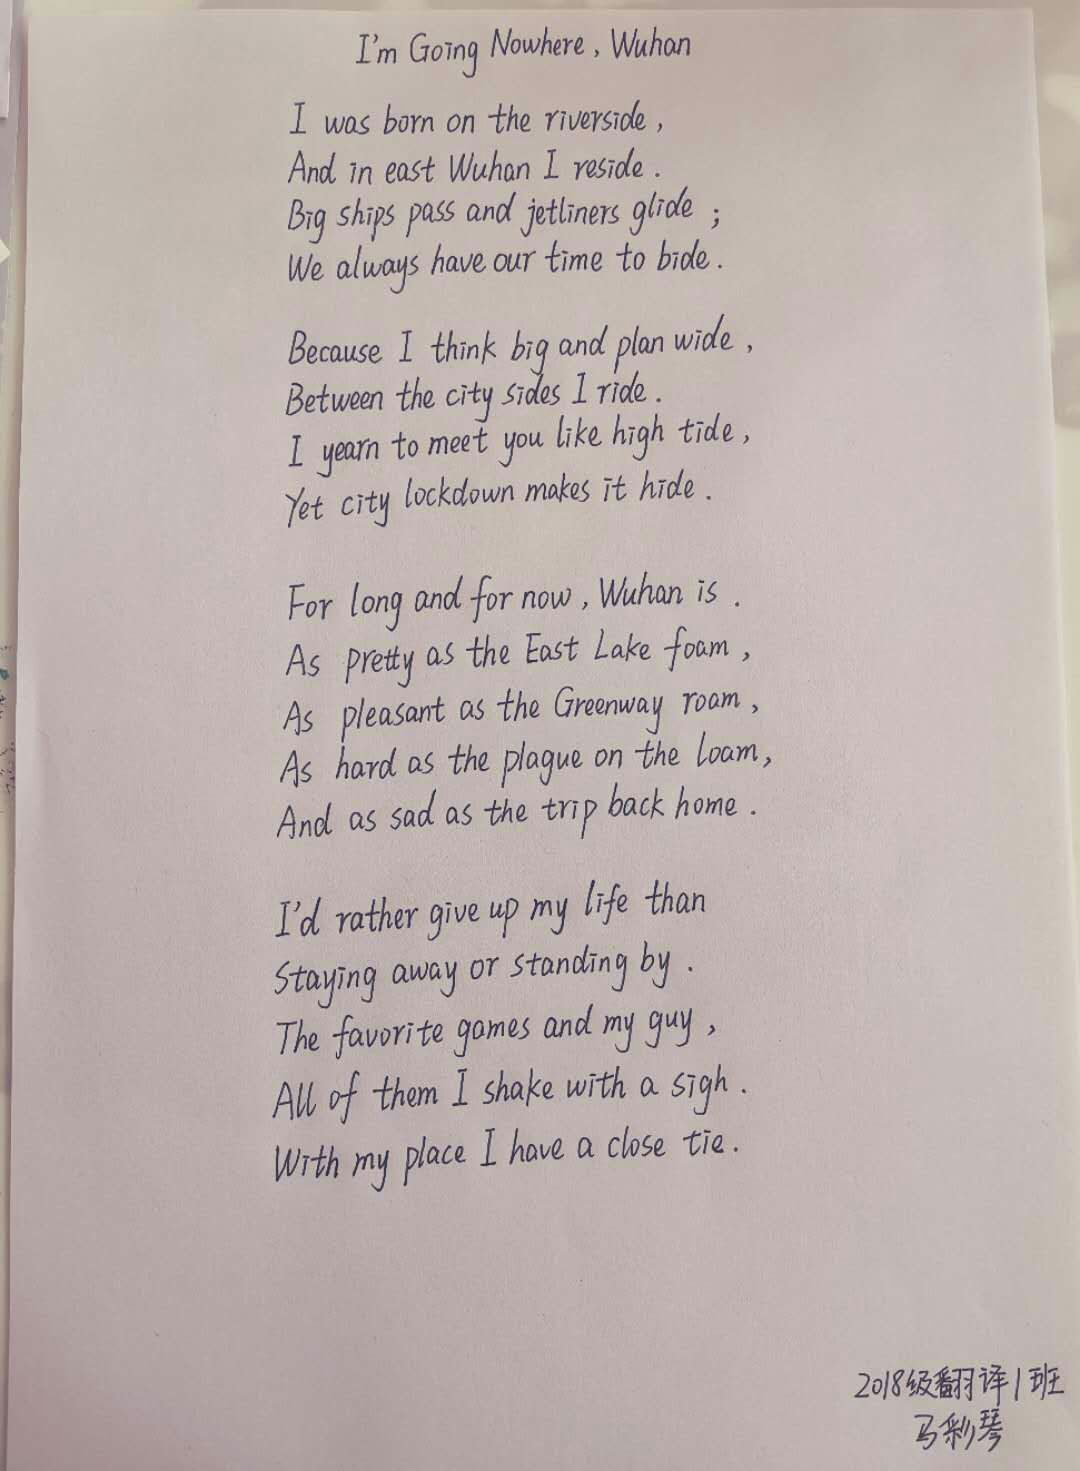 I'm Going Nowhere, Wuhan
I was born on the riverside,
And in east Wuhan I reside.
Big ships pass and jetliners glide;
We always have our time to bide.
Because I think big and plan wide,
Between the city sides I ride.
I yearn to meet you like high tide,
Yet city lockdown makes it hide.
For long and for now, Wuhan is.
As pretty as the East Lake foam,
As pleasant as the Greenway roam,
As hard as the plague on the loam,
And as sad as the trip back home.
I'd rather give up my life than
Staying away or standing by.
The favorite games and my guy,
All of them I shake with a sigh.
With my place I have a close tie.
2018级翻译1班
马彩琴